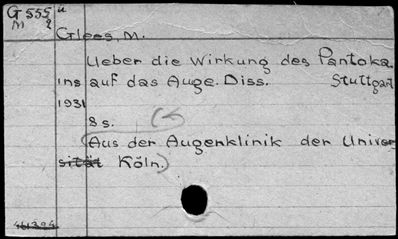 G 555 u
M 2
Glees, M.
Ueber die Wirkung des Pantoka
ins auf das Auge. Diss. Stuttgart
1931
8 s.
(Aus der Augenklinik der Univer-
sität Köln.)
461394